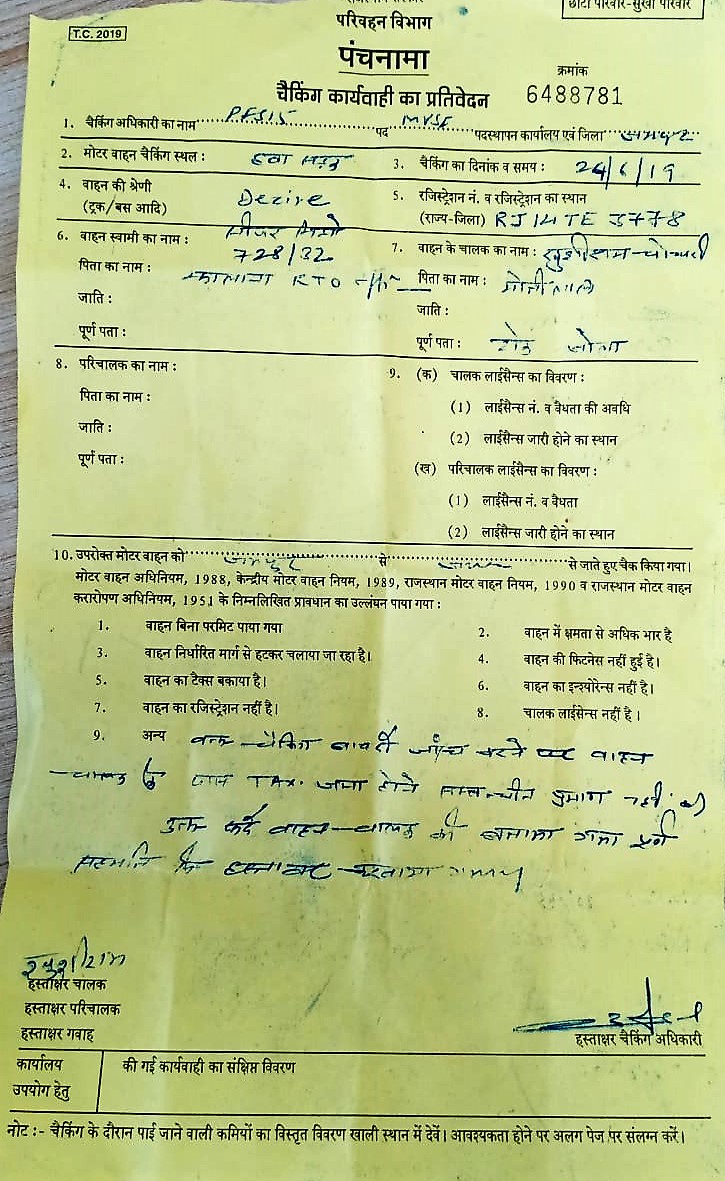 छोटा परिवार-सुखी परिवार
T.C. 2019
परिवहन विभाग
पंचनामा
क्रमांक
चैकिंग कार्यवाही का प्रतिवेदन 6488781
1. चैकिंग अधिकारी का नाम पद पदस्थापन कार्यालय एवं जिला
2. मोटर वाहन चैकिंग स्थल : 3. चैकिंग का दिनांक व समय : 24/6/19
4. वाहन की श्रेणी Dezire 5. रजिस्ट्रेशन नं. व रजिस्ट्रेशन का स्थान
(ट्रक/बस आदि) (राज्य-जिला) RJ14TE 3778
6. वाहन स्वामी का नाम : 7. वाहन के चालक का नाम :
728/32
पिता का नाम : RTO पिता का नाम : मोतीलाल
जाति : जाति :
पूर्ण पता : पूर्ण पता :
8. परिचालक का नाम : 9. (क) चालक लाईसैन्स का विवरण :
पिता का नाम : (1) लाईसैन्स नं. व वैधता की अवधि
जाति : (2) लाईसैन्स जारी होने का स्थान
पूर्ण पता : (ख) परिचालक लाईसैन्स का विवरण :
(1) लाईसैन्स नं. व वैधता
(2) लाईसैन्स जारी होने का स्थान
10. उपरोक्त मोटर वाहन को से से जाते हुए चैक किया गया।
मोटर वाहन अधिनियम, 1988, केन्द्रीय मोटर वाहन नियम, 1989, राजस्थान मोटर वाहन नियम, 1990 व राजस्थान मोटर वाहन
करारोपण अधिनियम, 1951 के निम्नलिखित प्रावधान का उल्लंघन पाया गया :
1. वाहन बिना परमिट पाया गया 2. वाहन में क्षमता से अधिक भार है
3. वाहन निर्धारित मार्ग से हटकर चलाया जा रहा है। 4. वाहन की फिटनेस नहीं हुई है।
5. वाहन का टैक्स बकाया है। 6. वाहन का इन्श्योरेन्स नहीं है।
7. वाहन का रजिस्ट्रेशन नहीं है। 8. चालक लाईसेन्स नहीं है ।
9. अन्य वक्त चैकिंग जाँच करने पर वाहन
चालक के पास TAX जमा होने
उक्त वाहन चालक को
हस्ताक्षर
हस्ताक्षर चालक
हस्ताक्षर परिचालक
हस्ताक्षर गवाह हस्ताक्षर चैकिंग अधिकारी
कार्यालय की गई कार्यवाही का संक्षिप्त विवरण
उपयोग हेतु
नोट :- चैकिंग के दौरान पाई जाने वाली कमियों का विस्तृत विवरण खाली स्थान में देवें। आवश्यकता होने पर अलग पेज पर संलग्न करें।